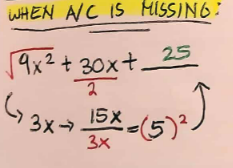 WHEN A/C IS MISSING:
√9x² + 30x + 25
2
↳ 3x → 15x/3x = (5)²